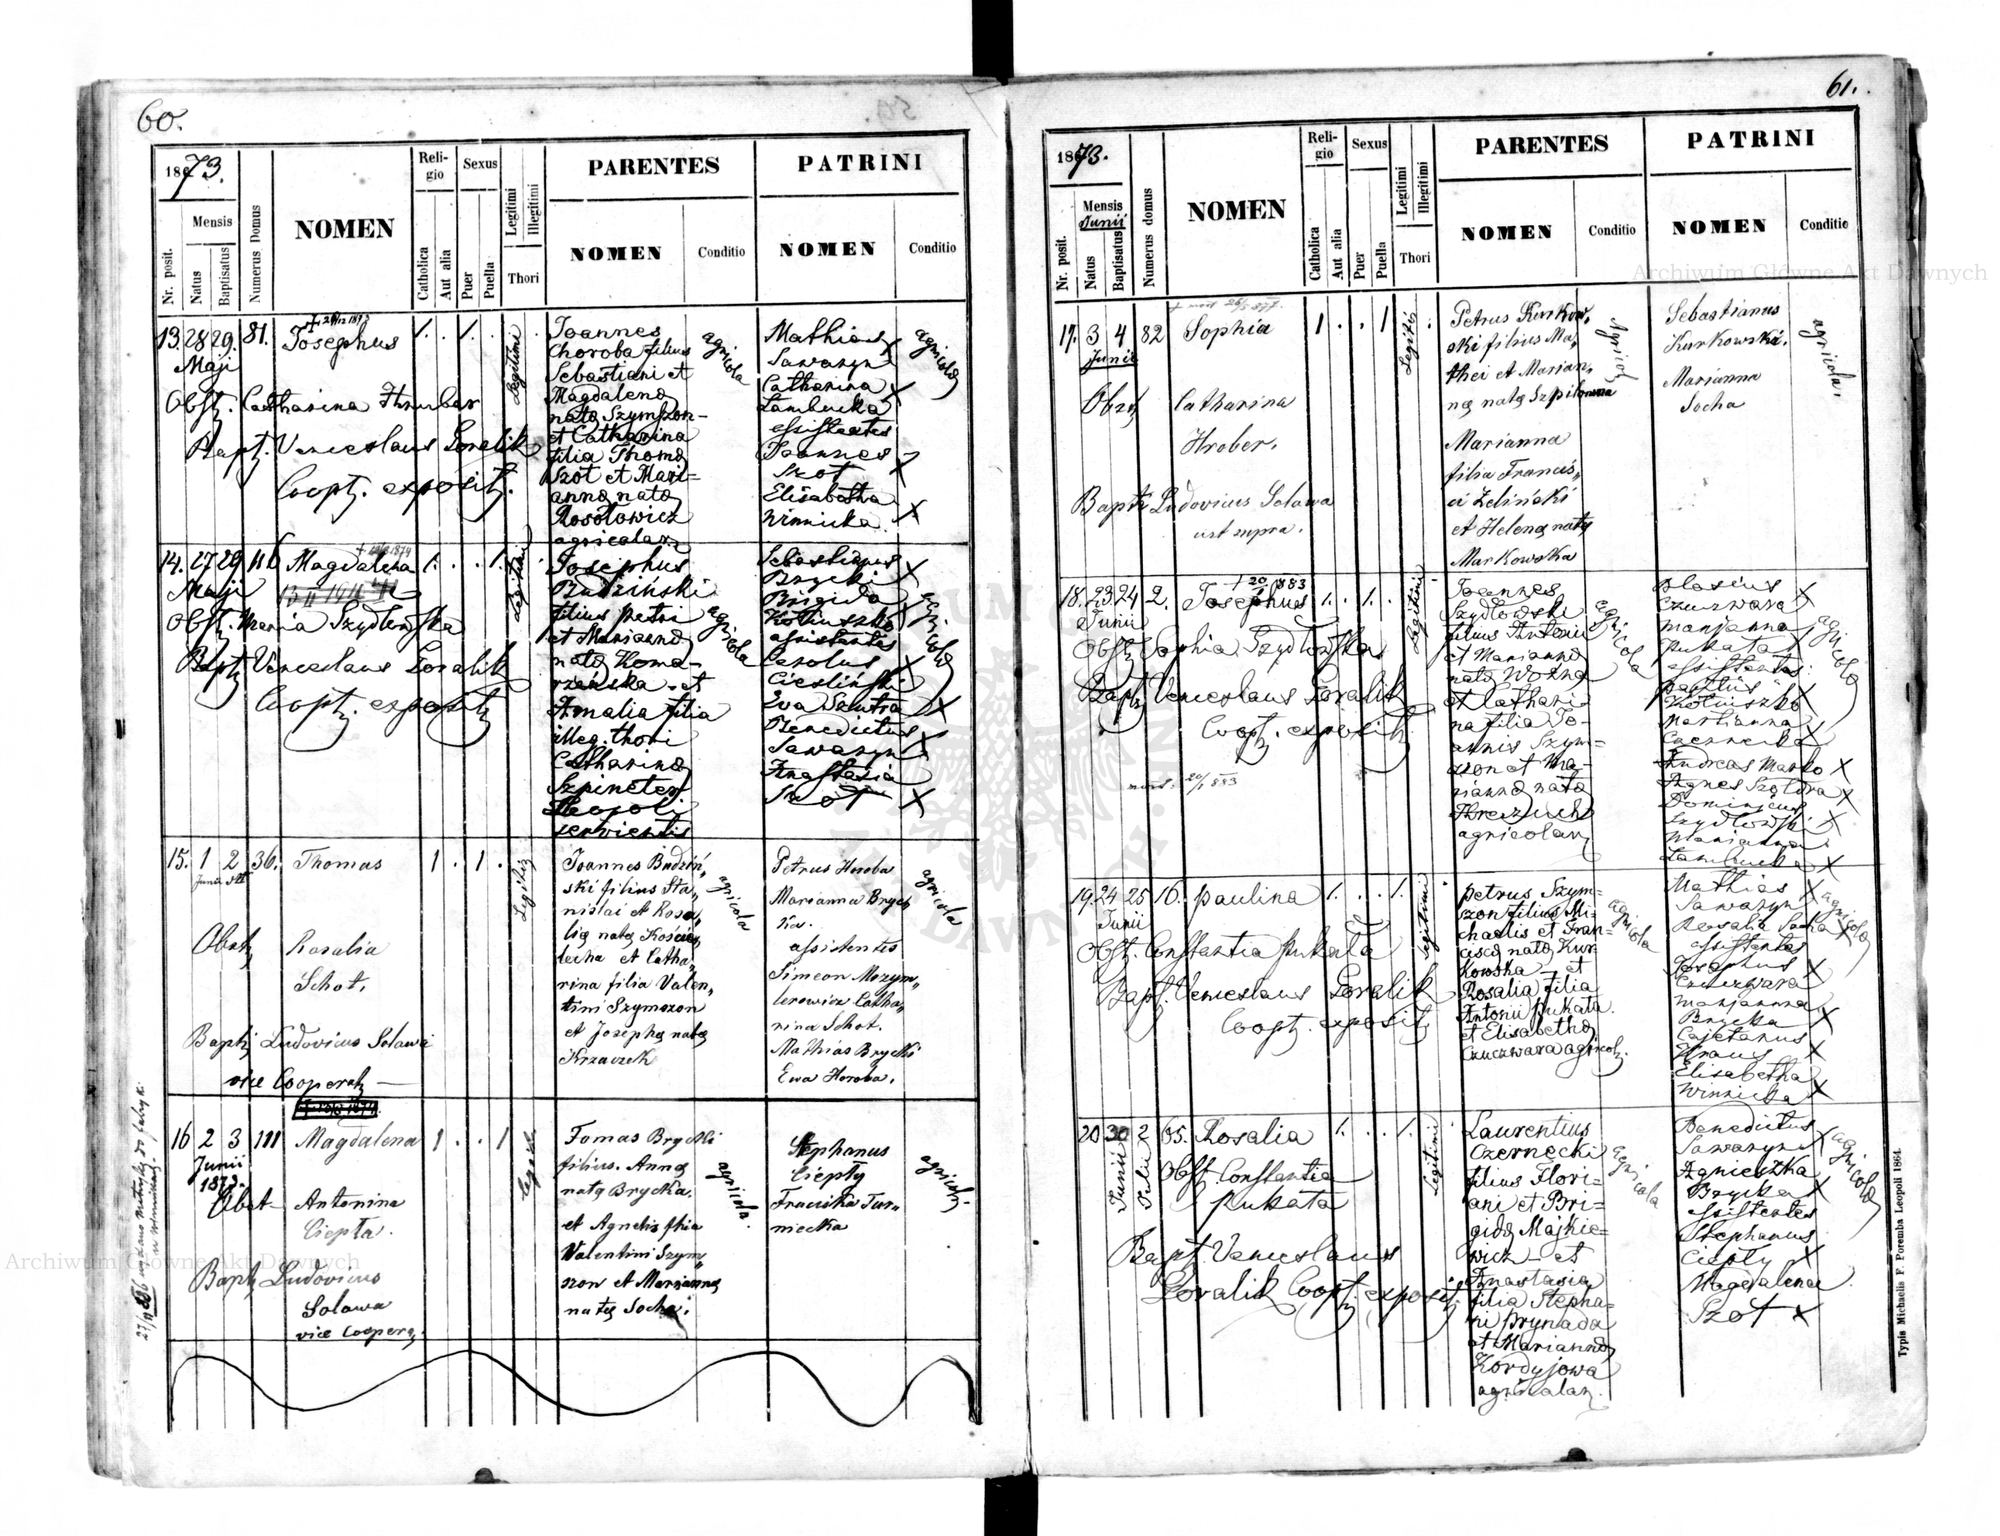 60.
1873.
Mensis
Nr. posit.
Natus
Baptisatus
Numerus Domus
NOMEN
Religio
Catholica
Aut alia
Sexus
Puer
Puella
Legitimi
Illegitimi
Thori
PARENTES
NOMEN
Conditio
PATRINI
NOMEN
Conditio
13. 28 29. 81. Josephus 1. . 1. .
Maji
Obst. Catharina Hrubar
Bapt. Venceslaus Goralik
Coopt. exposit.
Legitimi
Joannes
Choroba filius
Sebastiani et
Magdalena
nata Szymszon-
et Catharina
filia Thoma
Szot et Mari-
anna nata
Rosołowicz
agricolar
agricola
Mathias
Sawaryn
Catharina
Łambucka
assistentes
Joannes
Szot
Elisabetha
Winnicka
agricola
14. 27 29 116 Magdalena 1. . . 1.
Maji
Obst. Maria Szydłowska
Bapt Venceslaus Goralik
Coopt. exposit
Legitimi
Josephus
Budziński
filius Petri
et Marianna
nata Koma-
rzańska et
Amalia filia
illeg. thori
Catharina
Szpineter
Leopoli
servientis
agricola
Sebastianus
Brycki
Brigida
Kotiuszko
assistentes
Carolus
Ciesliński
Eva Dziutra
Benedictus
Sawaryn
Anastasia
Szot
15. 1 2 36. Thomas 1 . 1 .
Obst Rosalia
Schot.
Bapt Ludovicus Solawa
vice Cooperat
Joannes Budziń„
ski filius Sta„
nislai et Rosa„
lia nata Koście„
lecka et Catha„
rina filia Valen„
tini Szymszon
et Josepha nata
Krzaczek
agricola
Petrus Horoba
Marianna Bryc„
ka.
assistentes
Simeon Mozym„
lerowicz Catha„
rina Schot.
Mathias Brycki
Ewa Horoba.
agricola
16 2 3 111 Magdalena 1 . . 1
Junii
1873.
Obst Antonina
Ciepta.
Bapt Ludovicus
Solawa
vice Cooper.
Tomas Brycki
filius Anna
nata Brycka.
et Agnetis filia
Valentini Szym„
szon et Marianna
nata Socha.
agricola.
Stephanus
Ciepty
Franciska Tur„
niecka
61.
1873.
Mensis
Junii
Nr. posit.
Natus
Baptisatus
Numerus domus
NOMEN
Religio
Catholica
Aut alia
Sexus
Puer
Puella
Legitimi
Illegitimi
Thori
PARENTES
NOMEN
Conditio
PATRINI
NOMEN
Conditio
17. 3 4 82 Sophia 1 . . 1
Junii
Obst Catharina
Hrober.
Bapt Ludovicus Solawa
ut supra.
Petrus Kurkow„
ski filius Ma„
thei et Marian„
na nata Szpilowna
Marianna
filia Francis„
ci Zeliński
et Helena nata
Markowska
Sebastianus
Kurkowski.
Marianna
Socha
agricola.
18. 23. 24 2. Josephus 1. . 1. .
Junii
Obst Sophia Szydłowska
Bapt Venceslaus Goralik
Coopt. exposit
Legitimi
Joannes
Szydłowski
filius Antonii
et Marianna
nata Wozna
et Cathari-
na filia Jo-
annis Szym=
szon et Ma-
rianna nata
Hreczuch
agricolar
agricola
Blasius
Czuczwara
Marjanna
Pukata
assistentes:
Paulus
Kotiuszko
Marianna
Czernecka
Andreas Marko
Agnes Szotora
Dominicus
Szydłowski
Marianna
Łambucka
agricola
19. 24 25 16. Paulina 1. . . 1.
Junii
Obst. Constantia Pukata
Bapt. Venceslaus Goralik
Coopt. exposit
Legitimi
Petrus Szym=
szon filius Mi-
chaelis et Fran-
cisca nata Kur-
kowska et
Rosalia filia
Antonii Pukata
et Elisabetha
Czuczwara agricol.
agricola
Mathias
Sawaryn
Rosalia Socha
assistentes
Josephus
Czuczwara
Marjanna
Brycka
Cajetanus
Kraus
Elisabetha
Winnicka
20 30 2 65. Rosalia 1. . . 1.
Junii
Julii
Obst. Constantia
Pukata
Bapt. Venceslaus
Goralik Coopt. exposit
Legitimi
Laurentius
Czernecki
filius Flori-
ani et Bri-
gida Majkie-
wicz et
Anastasia
filia Stepha-
ni Prynada
et Marianna
Kordyjowa
agricolar.
agricola
Benedictus
Sawaryn
Agnieszka
Brycka
assistentes
Stephanus
Ciepty
Magdalena
Szot
agricola
Typis Michaelis F. Poremba Leopoli 1864.
Archiwum Główne Akt Dawnych
Archiwum Główne Akt Dawnych